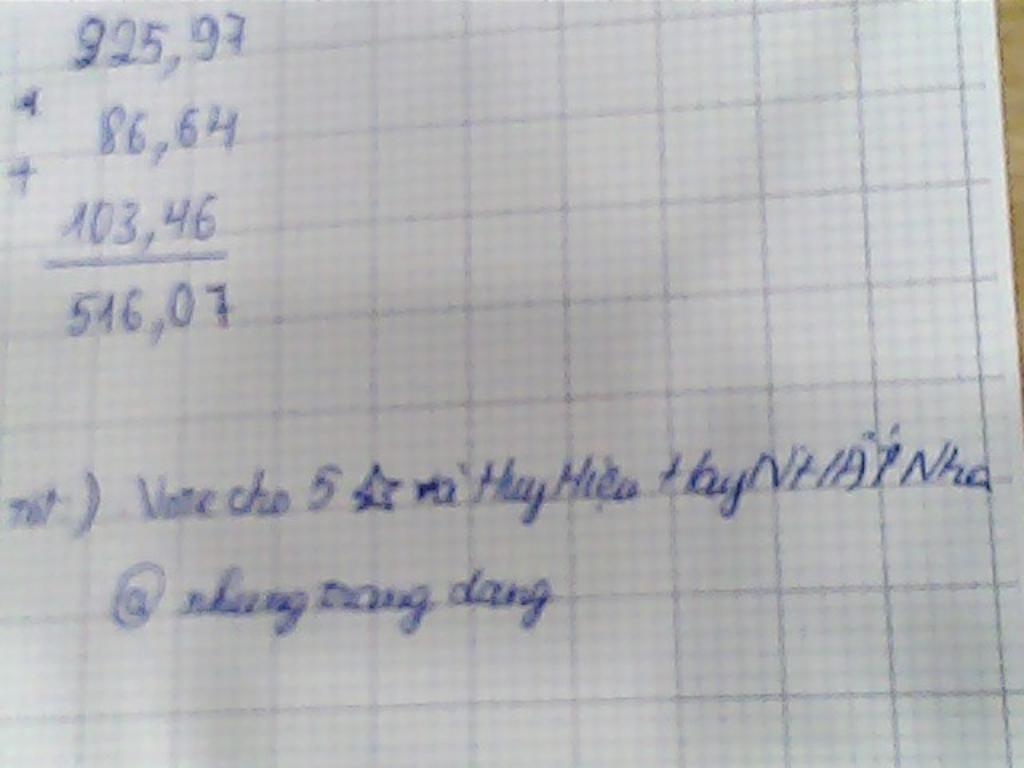 325,97
+
86,64
+
103,46
516,07
) Vote cho 5 ☆ và Huy Hiệu Hay NHẤT Nha
@